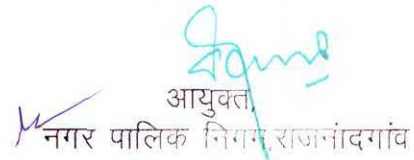 आयुक्त,
नगर पालिक निगम, राजनांदगांव